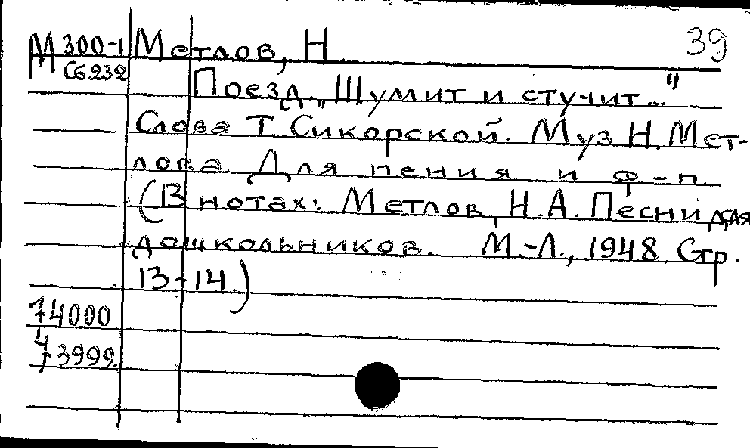 М 300-1 Метлов, Н 39
С6232
Поезд „Шумит и стучит..."
Слова Т. Сикорской. Муз. Н. Мет-
лова Для пения и ф-п
(В нотах: Метлов, Н.А. Песни для
дошкольников. М.-Л., 1948. Стр.
13-14)
74000
73999